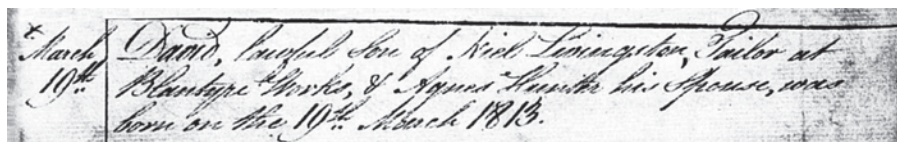 March David, lawful Son of Niel Livingston, Tailor at
19th Blantyre Works, & Agnes Hunter his Spouse, was
born on the 19th March 1813.